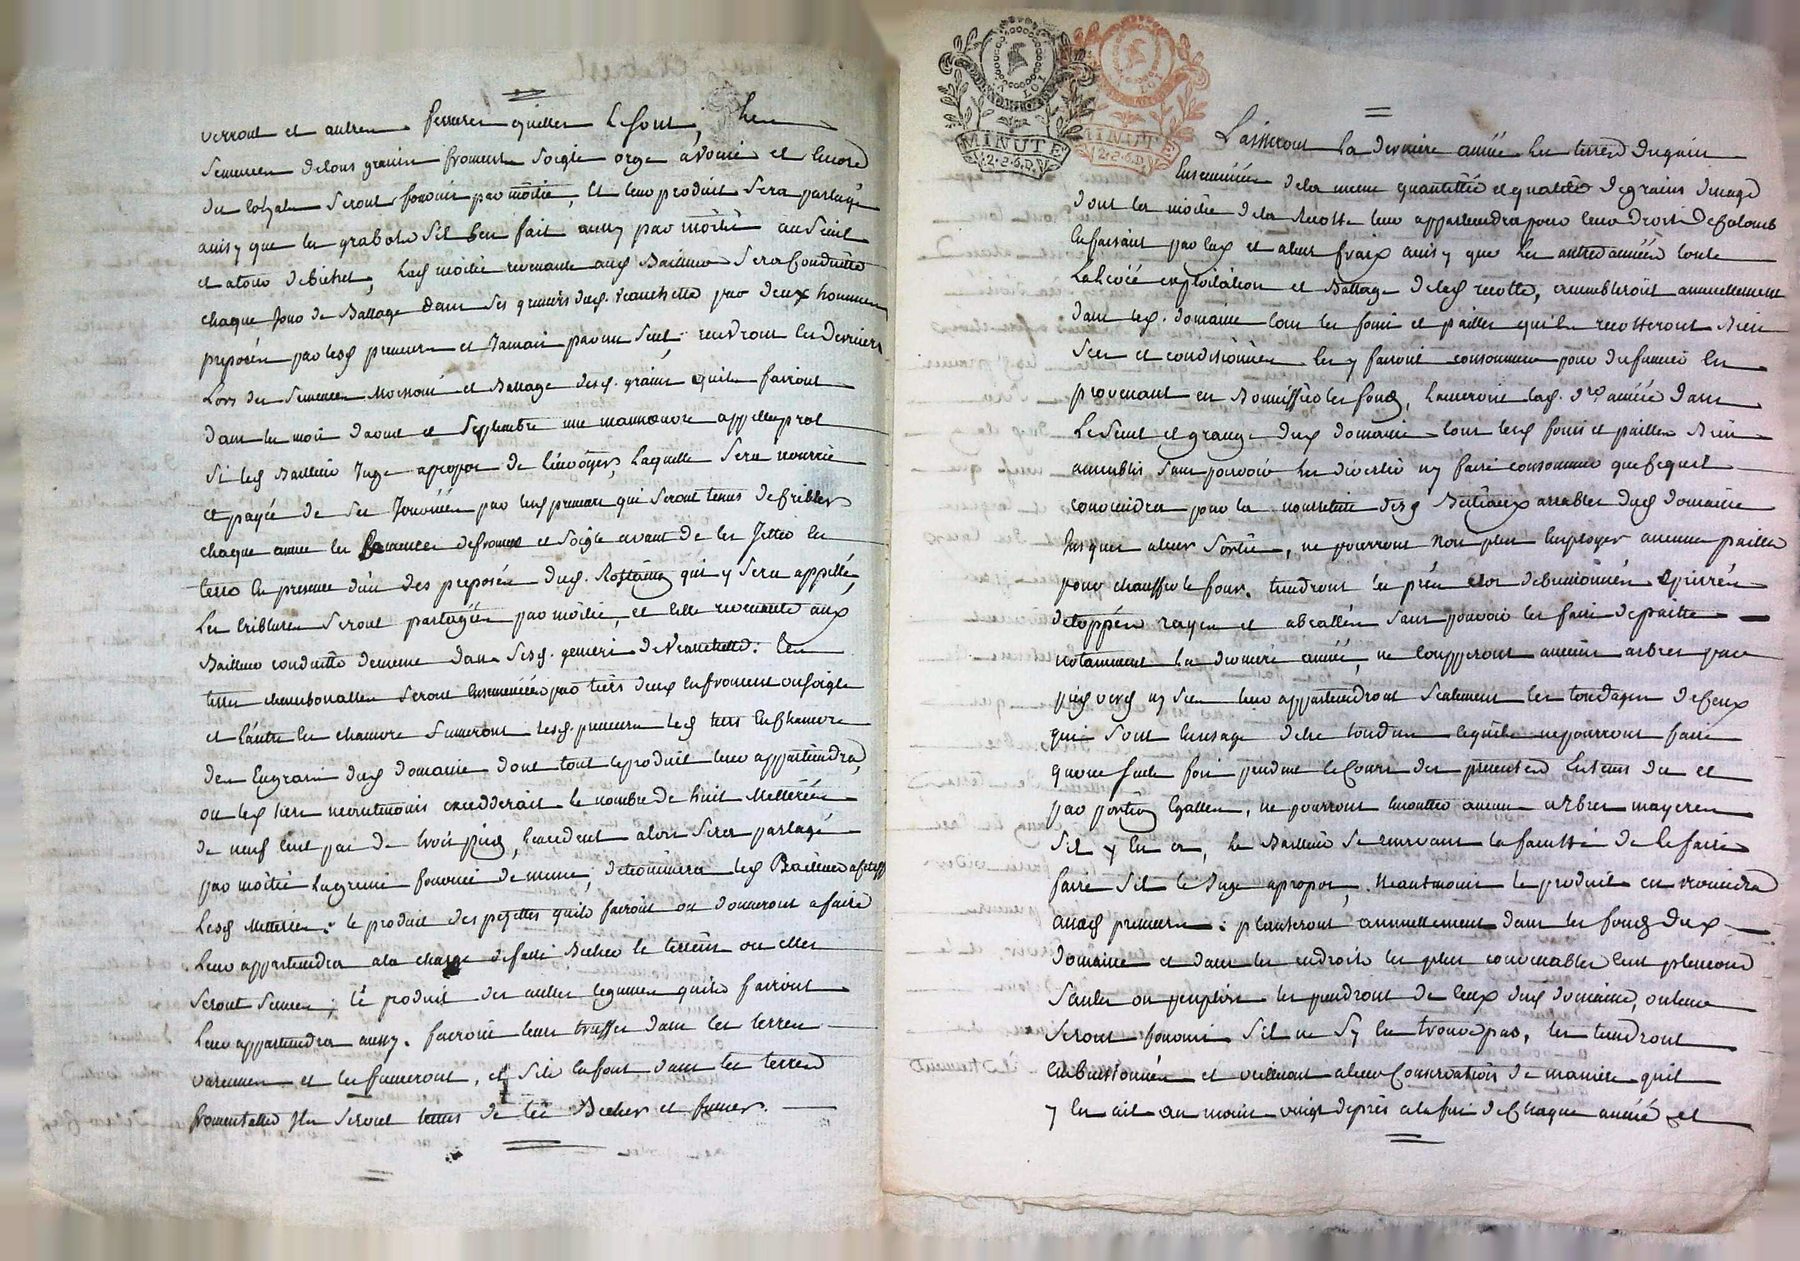 verront et autres ferrures quelles le sont, Les
Semences de tous grains froment Soigle orge avoine et encore
du colzat Seront fournis par moitié, et leur produit Sera partagé
ainsy que les grabots Sil sen fait aussy par moitié au Seuil
et à tour de bichet, lad moitié revenante aud Bailleur Sera Conduitte
chaque Jour de Battage dans Ses greniers dud. veauchette par deux hommes
preposés par lesd preneurs et Jamais par un Seul; rendront les derniers
Lors des Semences Moissons et Battage desd. grains quils fairont
dans les mois daoust et Septembre une manoeuvre appellée prat
Si led Bailleur Juge apropos de lenvoyer, Laquelle Sera nourrie
et payée de Ses Journées par lesd preneurs qui Seront tenus de cribler
chaque année les Semences de froment et Soigle avant de les Jetter en
terre en presence dun des preposés dud. Rostaing qui y Sera appellé,
Les criblures Seront partagées par moitié, et celle revenante aux
Bailleur conduitte de meme dans Sesd. greniers de Veauchette. Les
terres chambonalles Seront ensemencées par tiers deux en froment ou Soigle
et Lautre en chanvre fumeront lesd. preneurs led tiers en chanvre
des Engrais dud domaine dont tout le produit leur appartiendra,
ou led tiers neantmoins excedderait le nombre de huit Metterées
de neuf cent pas de trois pieds, Lexcedent alors Sera partagé
par moitié La graine fournie de meme, determinera led Bailleur
Lesd Metterées: le produit des pezettes quils fairont ou donneront a faire
Leur appartiendra ala charge de faire Becher le terrein ou elles
Seront Semées; le produit des autres legumes quils fairont
Leur appartiendra aussy. fairont leurs truffes dans les terres
varennes et les fumeront, et Sils en font dans les terres
fromentalles Ils Seront tenus de les Becher et fumer.
LA LOI
MINUTE
2.2.6.D.
MINUTE
2.2.6.D.
Laisseront la derniere année les terres dugain
Ensemencées de la meme quantitée et qualité de grains dusage
dont la moitié de la recotte leur appartiendra pour leur droit de Colons
En faisant par eux et aleurs fraix ainsy que les autres années toute
La levée exploitation et Battage de lad recotte, ameubleront annuellement
dans led. domaine tous les foins et pailles quils recotteront Bien
Secs et condisionnés les y fairont consommer pour des fumiers en
provenant en Bonniffier les fonds, Laisseront lad. dre année dans
Le Seuil et grange dud domaine tous lesd foins et pailles Bien
ameublis Sans pouvoir les divertir ny faire consommer que ce quil
conviendra pour la nourriture desd Bestiaux arrables dud domaine
Jusques aleur Sortie, ne pourront non plus Employer aucune paille
pour chauffer le four. tiendront les prés clos debuissonnés épierrés
détoppés rayes et abeallés Sans pouvoir les faire depaitre
notamment la derniere année, ne coupperont aucuns arbres par
pied verd ny Sec leur appartiendront Seulement les tondages de Ceux
qui Sont En usage detre tondus lequils ne pourront faire
quune Seule fois pendant le Cours des presentes En tems du et
par portion Egalles, ne pourront Emoutter aucun arbres mayeres
Sil y En a, le Bailleur Se reservant la faculté de le faire
faire Sil le Juge apropos, Neantmoins le produit en reviendra
auxd preneurs: planteront annuellement dans les fonds dud
domaine et dans les endroits les plus convenables cent plançons
Saules ou peupliers les prendront de Ceux dud domaine, ou leur
Seront fournis Sil ne Sy En trouve pas, les tiendront
Enbuissonnés et veilleront aleur Conservation de maniere quil
y En ait au moins vingt de pris ala fin de Chaque année et